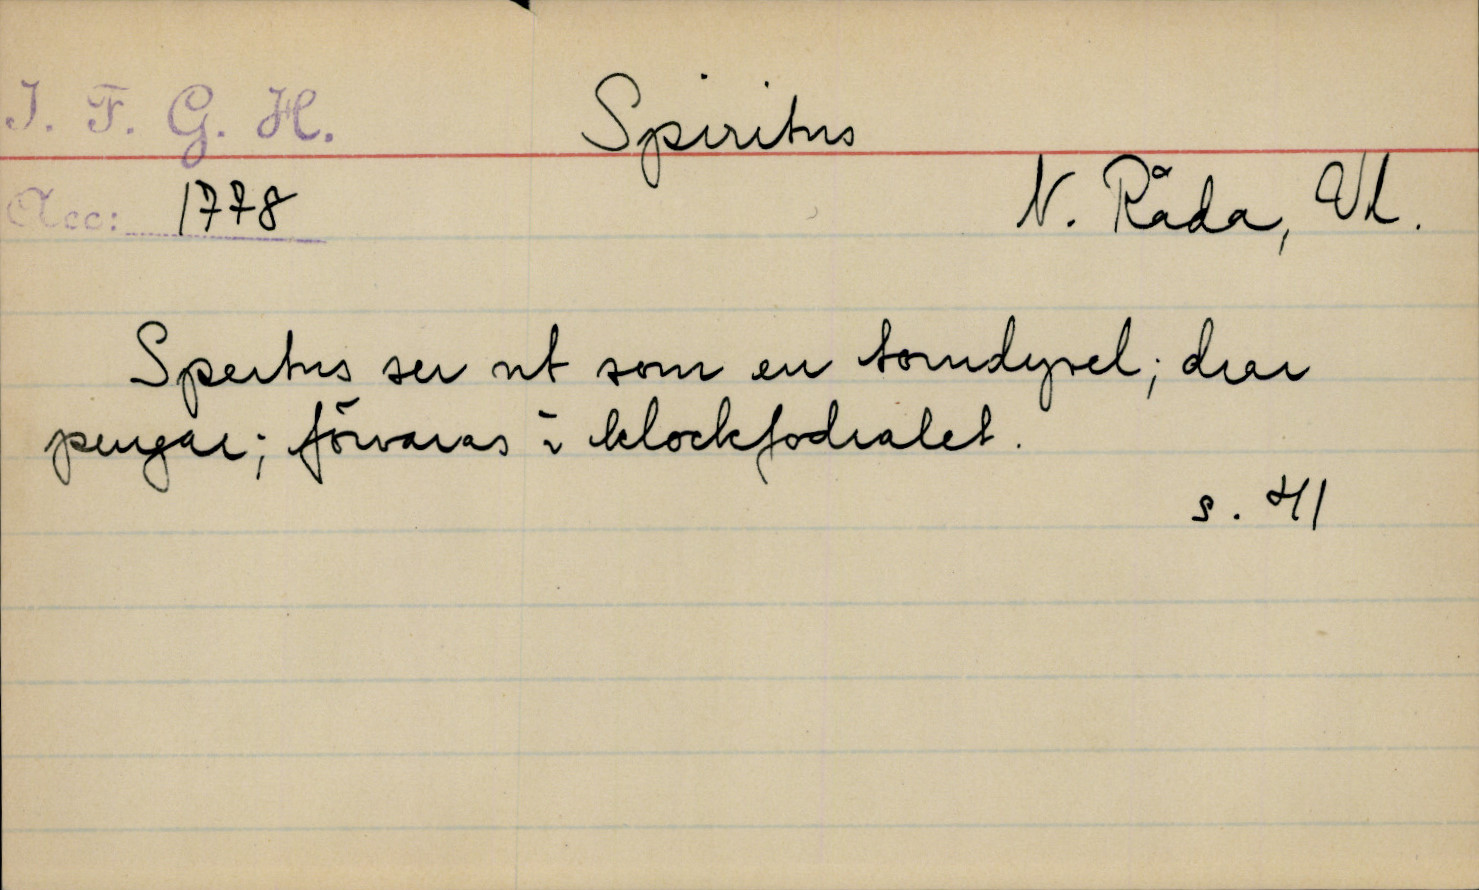 I. F. G. H.
Spiritus
Acc: 1778
N. Råda, Vl.
Spertus ser ut som en torndyvel; drar
pengar; förvaras i klockfodralet.
s. 41